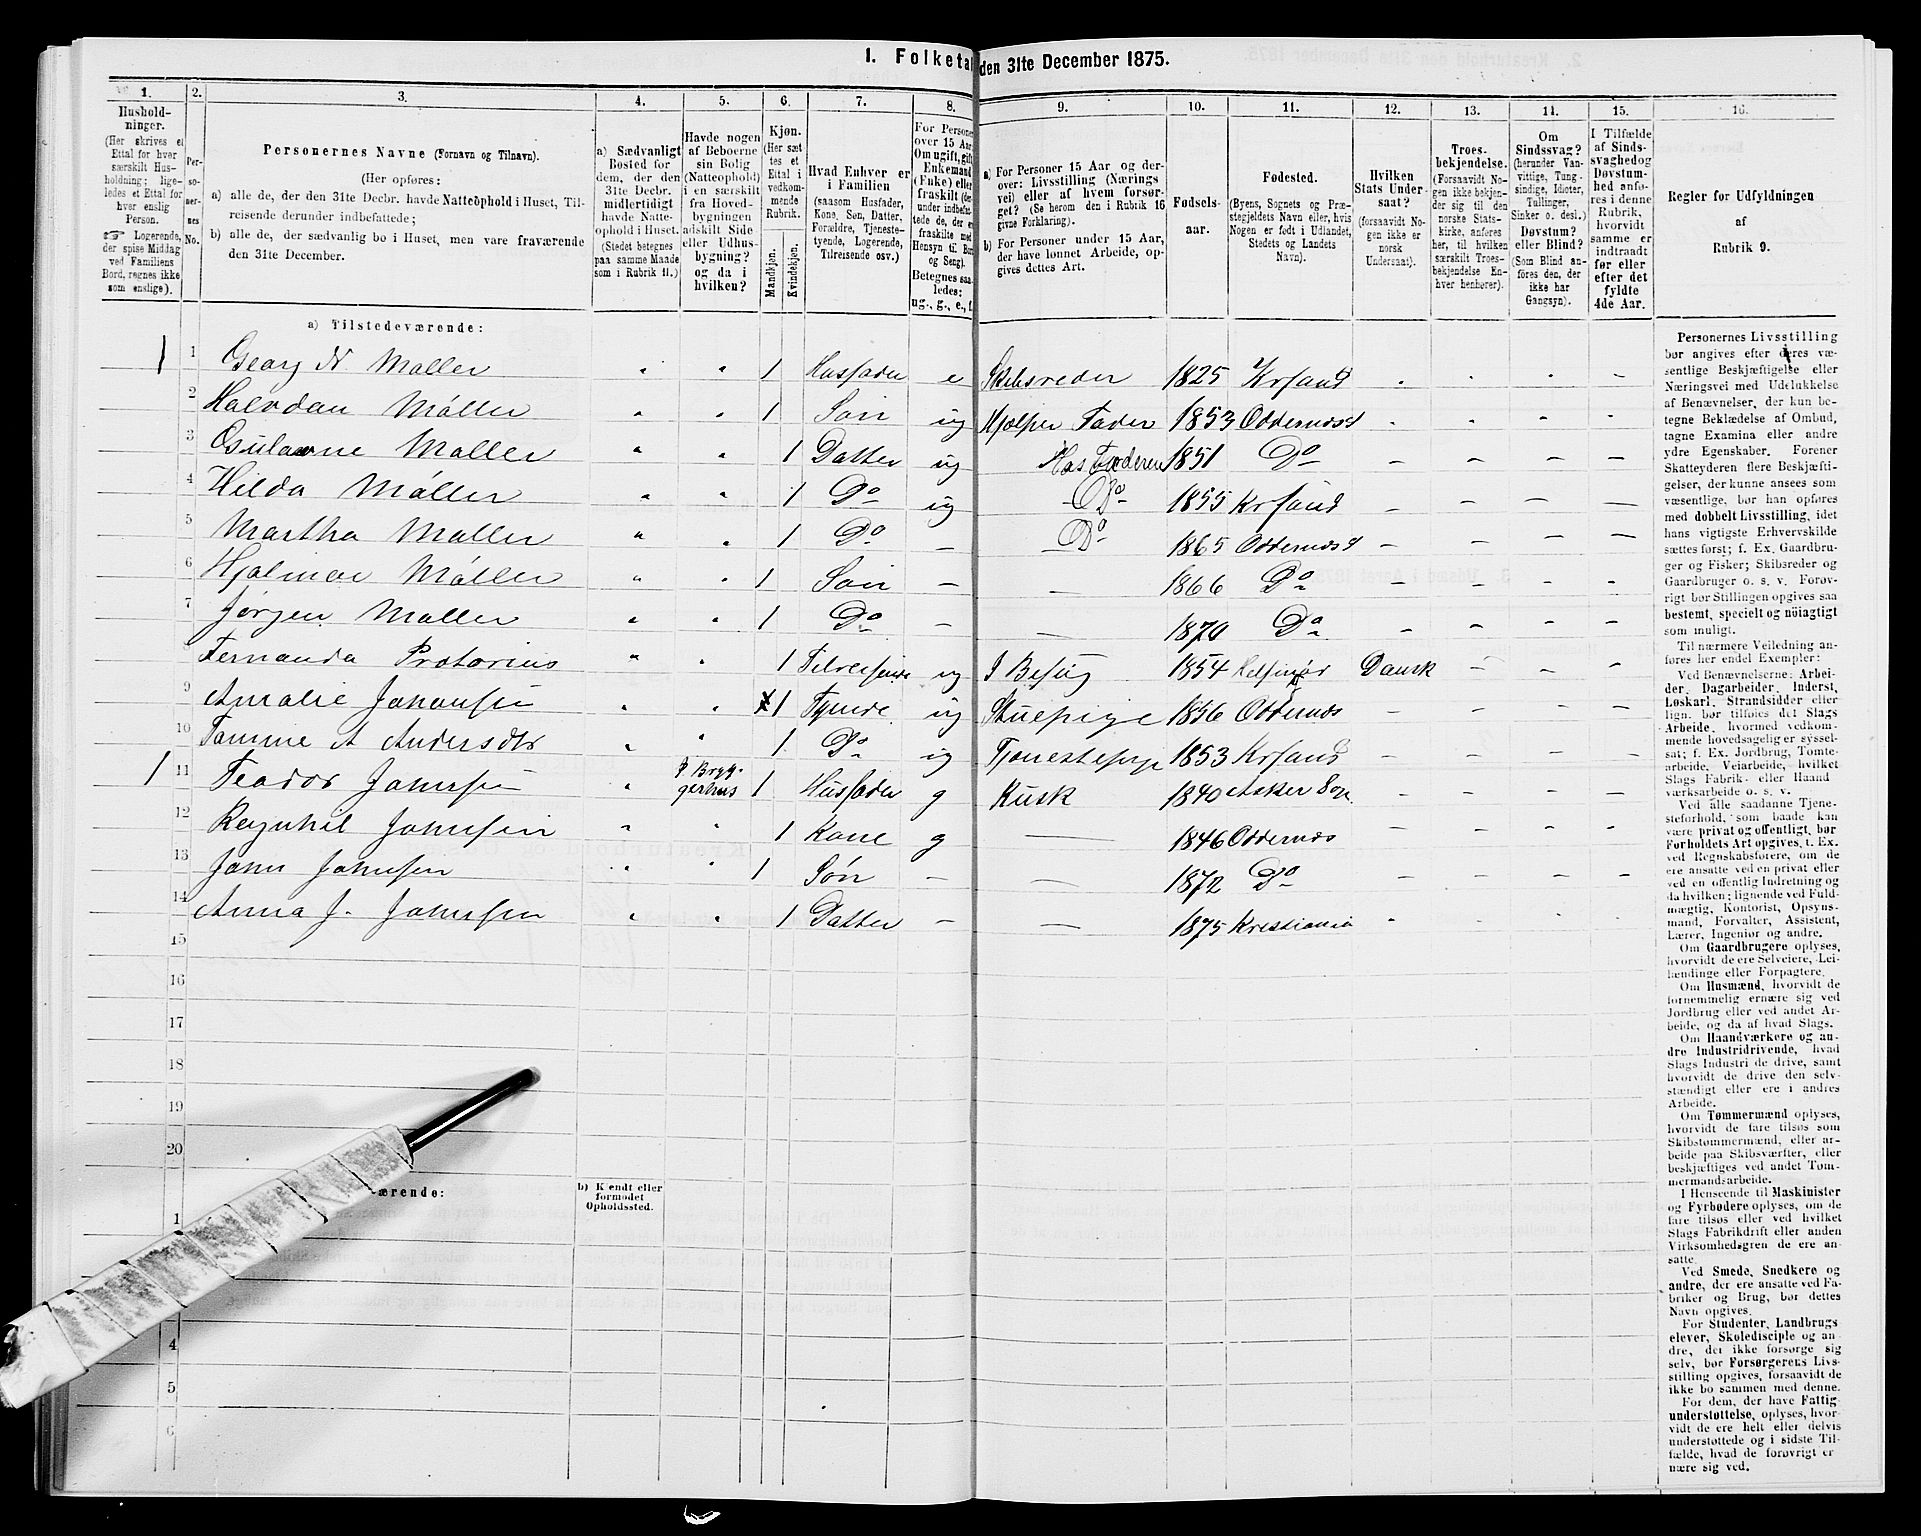 1. Folketal den 31te December 1875.
1. 2. 3. 4. 5. 6. 7. 8. 9. 10. 11. 12. 13. 14. 15. 16.
Hushold-
ninger.
(Her skrives et
Ettal for hver
særskilt Hus-
holdning; lige-
ledes et Ettal for
hver enslig
Person.
☞ Logerende,
der spise Middag
ved Familiens
Bord, regnes ikke
som enslige).
Per-
so-
ner-
nes
No.
Personernes Navne (Fornavn og Tilnavn).
(Her opføres:
a) alle de, der den 31te Decbr. havde Natteophold i Huset, Til-
reisende derunder indbefattede;
b) alle de, der sædvanlig bo i Huset, men vare fraværende
den 31te December.
a) Sædvanligt
Bosted for
dem, der den
31te Decbr.
midlertidigt
havde Natte-
ophold i Huset.
(Stedet betegnes
paa samme Maade
som i Rubrik 11.)
Havde nogen
af Beboerne
sin Bolig
(Natteophold)
i en særskilt
fra Hoved-
bygningen
adskilt Side
eller Udhus-
bygning?
og da i
hvilken?
Kjøn.
(Her sæt-
tes et
Ettal i
vedkom-
mende
Rubrik.
Mandkjøn.
Kvindekjøn.
Hvad Enhver er
i Familien
(saasom Husfader,
Kone, Søn, Datter,
Forældre, Tjeneste-
tyende, Logerende,
Tilreisende osv.)
For Personer
over 15 Aar:
Om ugift, gift,
Enkemand
(Enke) eller
fraskilt (der-
under indbefat-
tede de, der er
fraskilte med
Hensyn til Bord
og Seng).
Betegnes saa-
ledes:
ug., g., e., f.
a) For Personer 15 Aar og der-
over: Livsstilling (Nærings-
vei) eller af hvem forsør-
get? (Se herom den i Rubrik 16
givne Forklaring).
b) For Personer under 15 Aar,
der have lønnet Arbeide, op-
gives dettes Art.
Fødsels-
aar.
Fødested.
(Byens, Sognets og Præ-
stegjeldets Navn eller, hvis
Nogen er født i Udlandet,
Stedets og Landets
Navn).
Hvilken
Stats Under-
saat?
(forsaavidt No-
gen ikke er
norsk
Undersaat).
Troes-
bekjendelse.
(Forsaavidt No-
gen ikke bekjen-
der sig til den
norske Stats-
kirke, anføres
her, til hvilken
særskilt Troes-
bekjendelse En-
hver henhører).
Om
Sindssvag?
(herunder Van-
vittige, Tung-
sindige, Idioter,
Tullinger,
Sinker o. desl.)
Døvstum?
eller Blind?
(Som Blind an-
føres den, der
ikke har
Gangsyn).
I Tilfælde
af Sinds-
svaghed og
Døvstum-
hed anfø-
res i denne
Rubrik,
hvorvidt
samme er
indtraadt
før eller
efter det
fyldte
4de Aar.
Regler for Udfyldningen
af
Rubrik 9.
a) Tilstedeværende:
1 1 Georg N Møller 1 Husfader e Skibsreder 1825 Krsand
2 Halvdan Møller 1 Søn ug Hjælper Fader 1853 Oddernes
3 Møller 1 Datter ug Hos Faderen 1851 Do
4 Hilda Møller 1 Do ug Do 1855 Krsand
5 Martha Møller 1 Do — Do 1865 Oddernes
6 Hjalmar Møller 1 Søn — — 1866 Do
7 Jørgen Møller 1 Do — — 1870 Do
Fernanda Prøtorius 1 Tilreisende ug I Besøg 1854 Helsingør Dansk
9 Amalie Johansen 1 Tyende ug Stuepige 1856 Oddernes
10 Tomine A Andersdtr 1 Do ug Tjenestepige 1853 Krsand
1 11 Teodor Johnsen I Bryg-
gerhus 1 Husfader g Kusk 1840 Asker Sogn
12 Reynhil Johnsen 1 Kone g — 1846 Oddernes
13 John Johnsen 1 Søn — — 1872 Do
14 Anna J. Johnsen 1 Datter — — 1875 Kristiania
15
16
17
18
19
20
værende:
b) Kjendt eller
formodet
Opholdssted.
1
4
5
6
Personernes Livsstilling
bør angives efter deres væ-
sentlige Beskjæftigelse eller
Næringsvei med Udelukkelse
af Benævnelser, der kun be-
tegne Beklædelse af Ombud,
tagne Examina eller andre
ydre Egenskaber. Forener
Skatteyderen flere Beskjæfti-
gelser, der kunne ansees som
væsentlige, bør han opføres
med dobbelt Livsstilling, idet
hans vigtigste Erhvervskilde
sættes først; f. Ex. Gaardbru-
ger og Fisker; Skibsreder og
Gaardbruger o. s. v. Forøv-
rigt bør Stillingen opgives saa
bestemt, specielt og nöiagtigt
som muligt.
Til nærmere Veiledning an-
føres her endel Exempler:
Ved Benævnelserne: Arbei-
der, Dagarbeider, Inderst,
Løskarl, Strandsidder eller
lign. bør tilføies det Slags
Arbeide, hvormed vedkom-
mende hovedsagelig er syssel-
sat; f. Ex. Jordbrug, Tomte-
arbeide, Veiarbeide, hvilket
Slags Fabrik- eller Haand-
værksarbeide o. s. v.
Ved alle saadanne Tjene-
steforhold, som baade kan
være privat og offentligt, bør
Forholdets Art opgives, t. Ex.
ved Regnskabsførere, om de
ere ansatte ved en privat eller
ved en offentlig Indretning og
da hvilken; lignende ved Fuld-
mægtig, Kontorist, Opsyns-
mand, Forvalter, Assistent,
Lærer, Ingeniør og andre.
Om Gaardbrugere oplyses,
hvorvidt de ere Selveiere, Lei-
lændinge eller Forpagtere.
Om Husmænd, hvorvidt de
fornemmelig ernære sig ved
Jordbrug eller ved andet Ar-
beide, og da af hvad Slags.
Om Haandværkere og an-
dre Industridrivende, hvad
Slags Industri de drive, samt
hvorvidt de drive den selv-
stændigt eller ere i andres
Arbeide.
Om Tømmermænd oplyses,
hvorvidt de fare tilsøs som
Skibstømmermænd, eller ar-
beide paa Skibsværfter, eller
beskjæftiges ved andet Tøm-
mermandsarbeide.
I Henseende til Maskinister
og Fyrbødere oplyses, om de
fare tilsøs eller ved hvilket
Slags Fabrikdrift eller anden
Virksomhedsgren de ere an-
satte.
Ved Smede, Snedkere og
andre, der ere ansatte ved Fa-
briker og Brug, bør dettes
Navn opgives.
For Studenter, Landbrugs-
elever, Skoledisciple og an-
dre, der ikke forsørge sig
selv, bør Forsørgerens Livs-
stilling opgives, forsaavidt de
ikke bo sammen med denne.
For dem, der have Fattig-
understøttelse, oplyses, hvor-
vidt de ere helt eller delvis
understøttede og i sidste Til-
fælde, hvad de forøvrigt er-
nære sig ved.